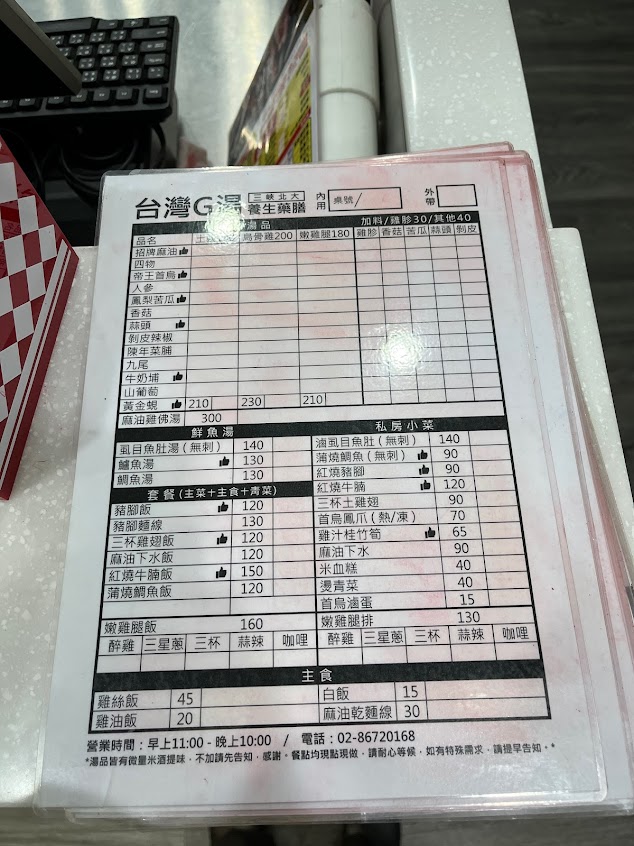 台灣G湯 三峽北大 養生藥膳 內用 桌號/ 外帶
湯品 加料/雞胗30/其他40
品名 烏骨雞200 嫩雞腿180 雞胗 香菇 苦瓜 蒜頭 剝皮
招牌麻油
四物
帝王首烏
人參
鳳梨苦瓜
香菇
蒜頭
剝皮辣椒
陳年菜脯
九尾
牛奶埔
山葡萄
黃金蜆 210 230 210
麻油雞佛湯 300
鮮魚湯
虱目魚肚湯(無刺) 140
鱸魚湯 130
鯛魚湯 130
套餐(主菜+主食+青菜)
豬腳飯 120
豬腳麵線 130
三杯雞翅飯 120
麻油下水飯 120
紅燒牛腩飯 150
蒲燒鯛魚飯 120
嫩雞腿飯 160
醉雞 三星蔥 三杯 蒜辣 咖哩
私房小菜
滷虱目魚肚(無刺) 140
蒲燒鯛魚(無刺) 90
紅燒豬腳 90
紅燒牛腩 120
三杯土雞翅 90
首烏鳳爪(熱/凍) 70
雞汁桂竹筍 65
麻油下水 90
米血糕 40
燙青菜 40
首烏滷蛋 15
嫩雞腿排 130
醉雞 三星蔥 三杯 蒜辣 咖哩
主食
雞絲飯 45 白飯 15
雞油飯 20 麻油乾麵線 30
營業時間：早上11:00 - 晚上10:00 / 電話：02-86720168
*湯品皆有微量米酒提味，不加請先告知，感謝。餐點均現點現做，請耐心等候，如有特殊需求，請提早告知。*